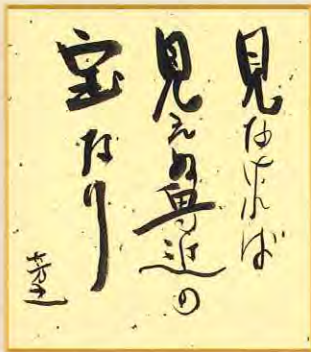 見なければ
見えぬ身近の
宝なり